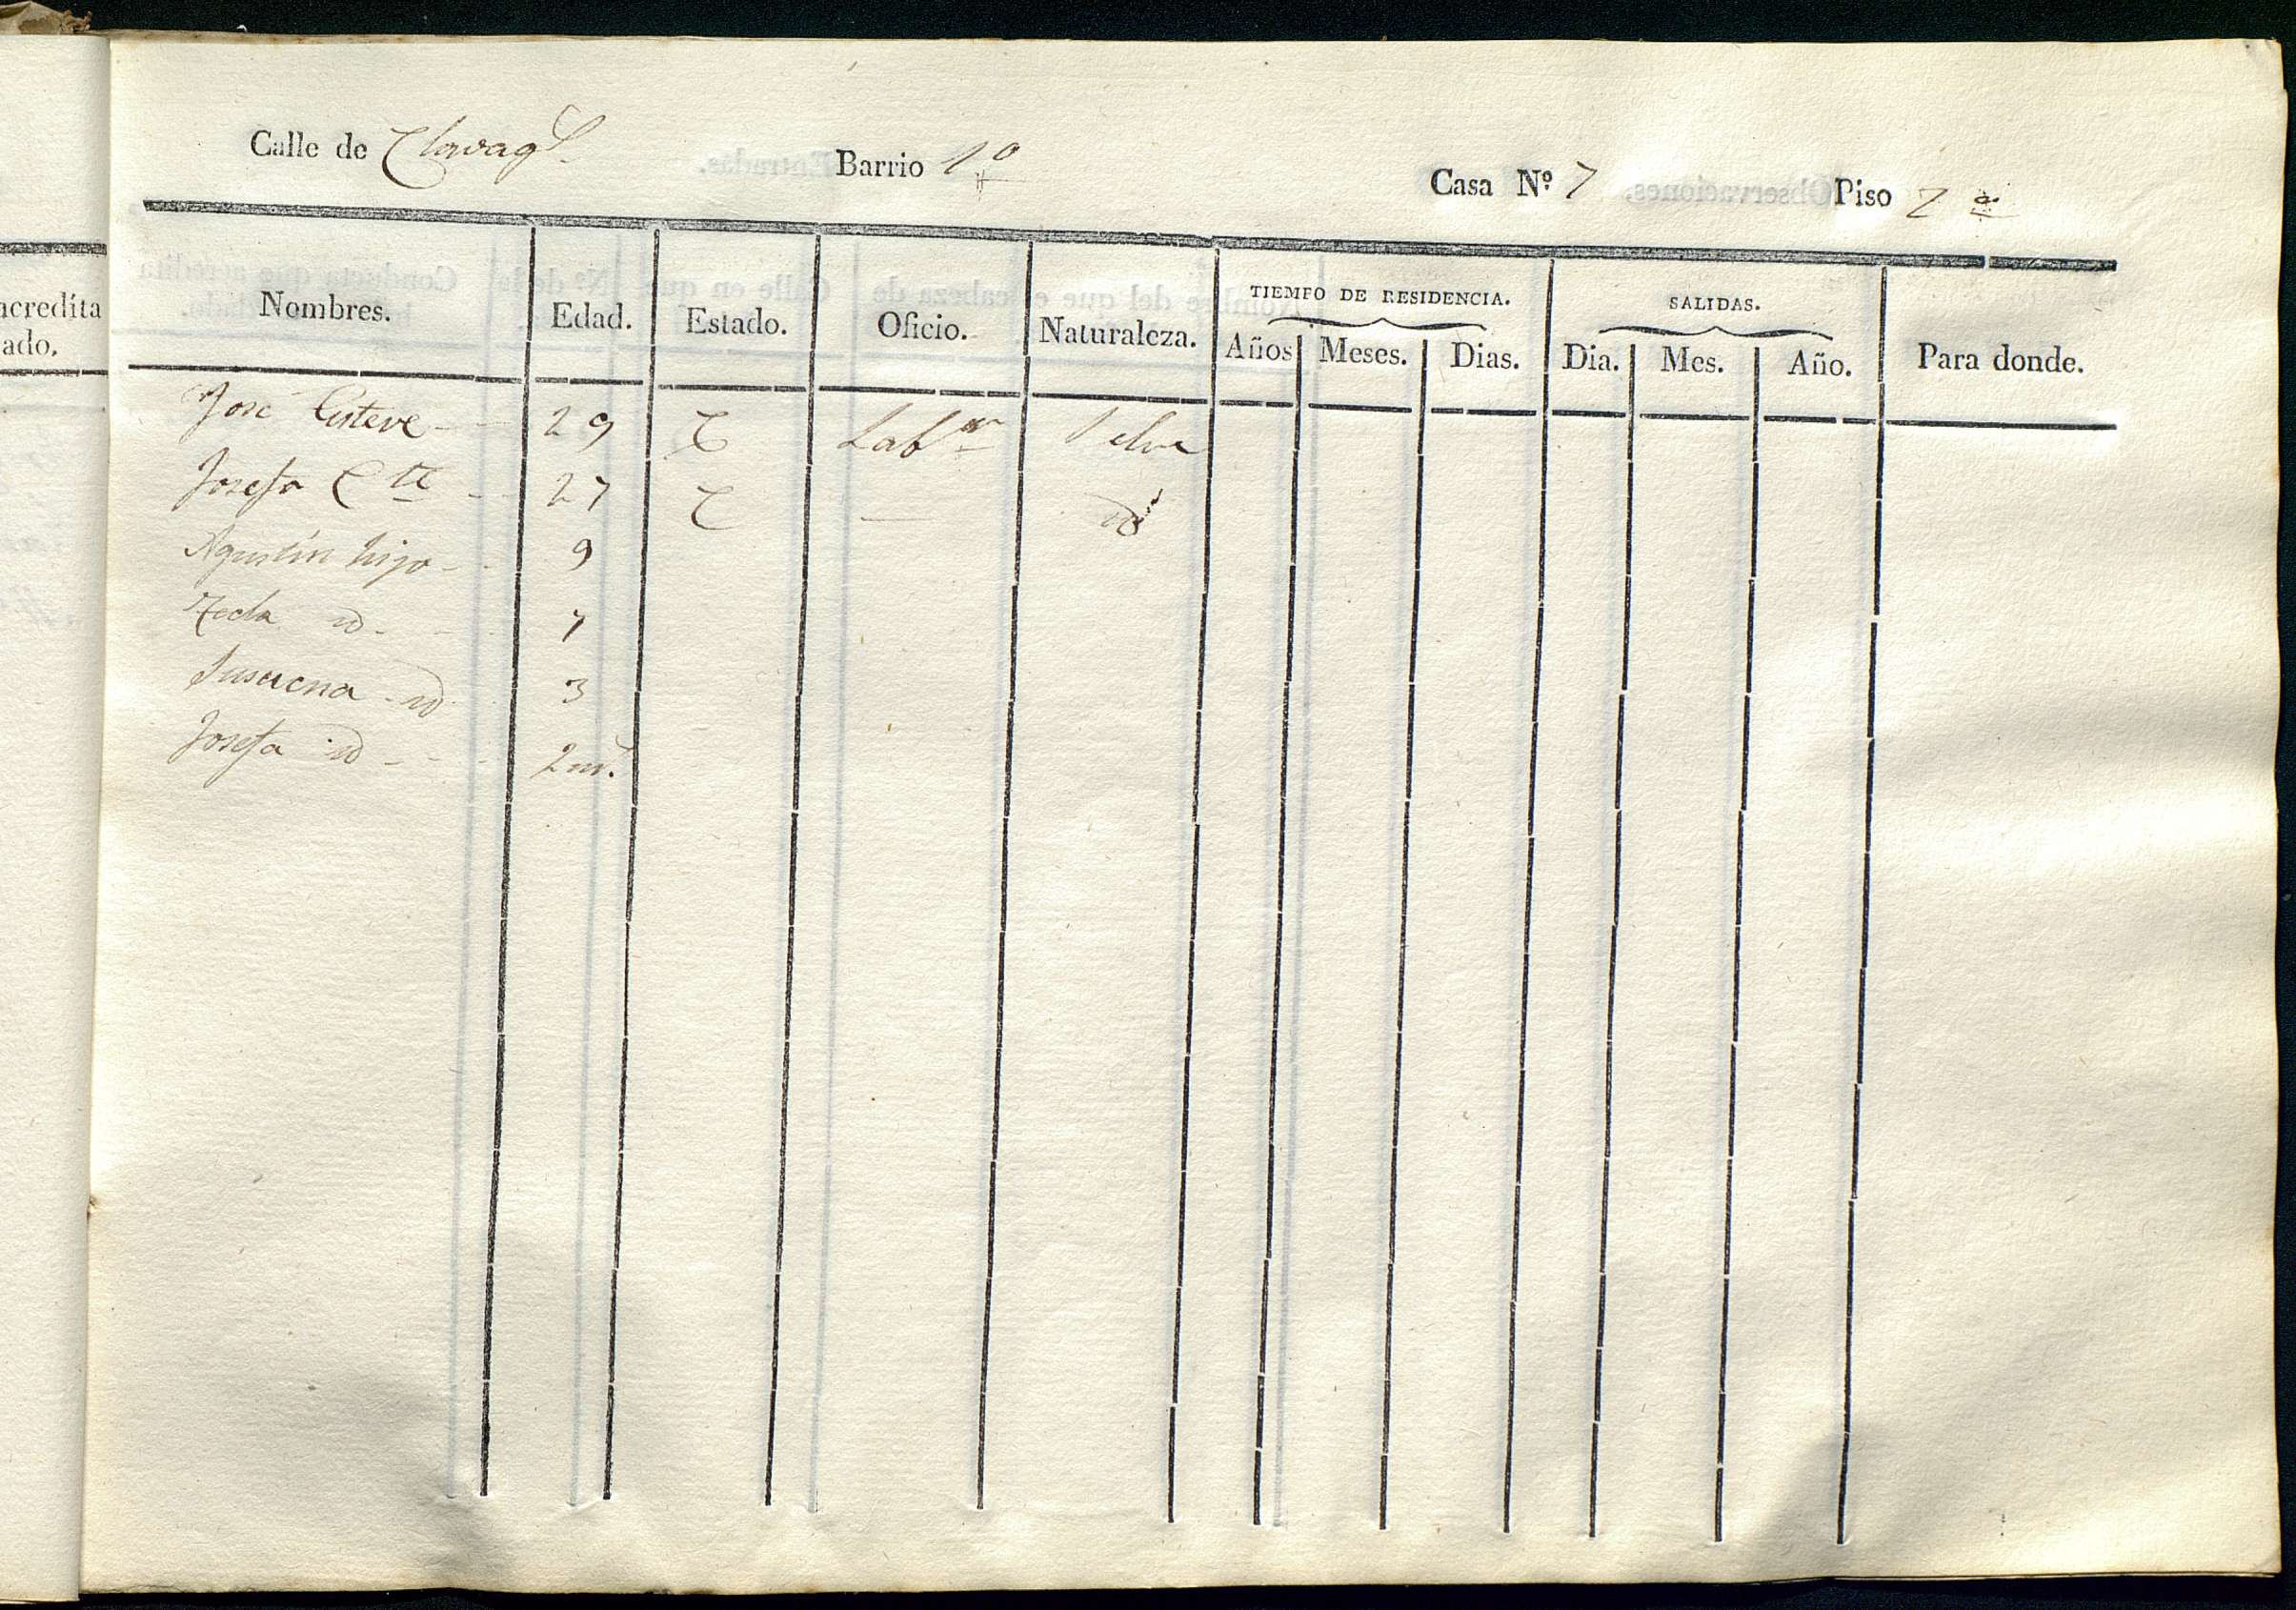 acredíta
ado.
Calle de Clavag.l Barrio 1.o Casa N.º 7 Piso 2.º
Nombres. Edad. Estado. Oficio. Naturaleza. TIEMPO DE RESIDENCIA. SALIDAS. Para donde.
Años Meses. Dias. Dia. Mes. Año.
José Esteve 29 C Lab.or Selva
Josefa C.te 27 C — id
Agustín hijo 9
Tecla id 7
Susaena id 3
Josefa id 2 m.s